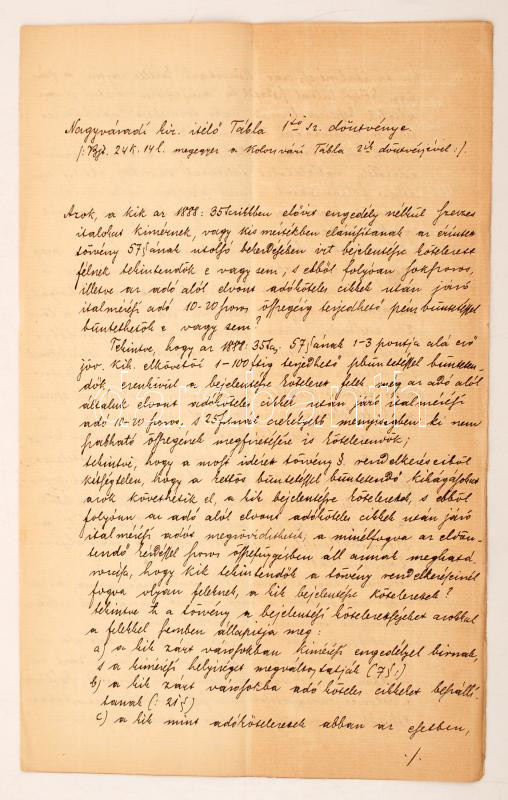 Nagyváradi kir. itélő Tábla 1ső sz. döntvénye.
(: Bjt. 24k. 14l. megegyez a Kolozsvári Tábla 2ik döntvényével :).
Azok, a kik az 1888: 35tcikkben előirt engedély nélkül szeszes
italokat kimérnek, vagy kis mértékben elárusitanak az érintett
törvény 57§ának utolsó bekezdésében irt bejelentésre kötelezett
félnek tekintendők e vagy sem; s ebből folyóan sokszoros,
illetve az adó alól elvont adóköteles cikkek után járó
italmérési adó 10-20 szoros összegéig terjedhető pénzbüntetéssel
büntethetők e vagy sem?
Tekintve, hogy az 1888:35tcz. 57§ának 1-3 pontja alá eső
jöv. kih. elkövetői 1-100 ftig terjedhető pbüntetéssel bünteten-
dők, ezenkivül a bejelentésre kötelezett felek még az adó alól
általuk elvont adóköteles cikkek után járó italmérési
adó 10-20 szoros, s 25 ftnál csekélyebb mennyiségben ki nem
szabható összegének megfizetésére is kötelezendők;
tekintve, hogy a most idézett törvény §. rendelkezéseiből
kétségtelen, hogy a kettős büntetéssel büntetendő kihágásokat
azok követhetik el, a kik bejelentésre kötelezettek, s ebből
folyóan az adó alól elvont adóköteles cikkek után járó
italmérési adót megrövidithetik, a minélfogva az eldön-
tendő kérdéssel szoros összefüggésben áll annak meghatá-
rozása, hogy kik tekintendők a törvény rendelkezéseinél
fogva olyan feleknek, a kik bejelentésre kötelezettek?
tekintve h. a törvény a bejelentési kötelezettséget azokkal
a felekkel szemben állapitja meg:
a) a kik zárt városokban kimérési engedélyel birnak,
s a kimérési helyiséget megváltoztatják (7§.)
b) a kik zárt városokba adóköteles cikkeket beszálli-
tanak (: 21§)
c) a kik mint adókötelezettek abban az esetben,
./.